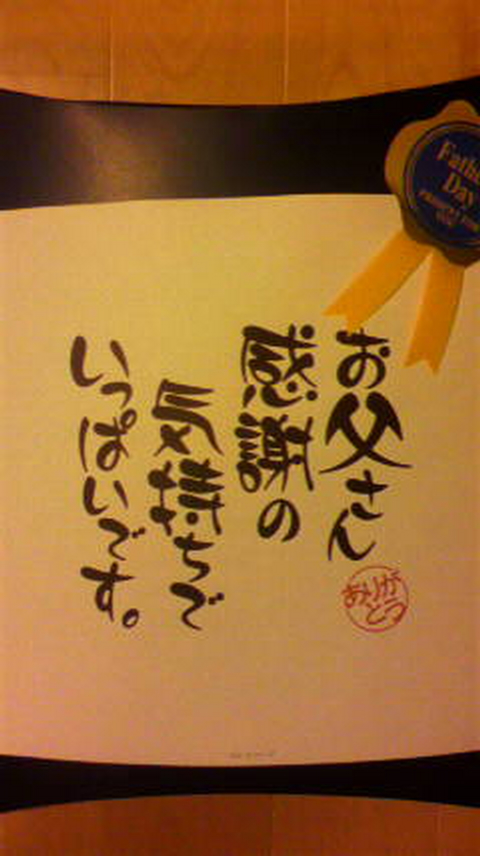 Fathe
Day
お父さん
感謝の
気持ちで
いっぱいです。
ありが
とう